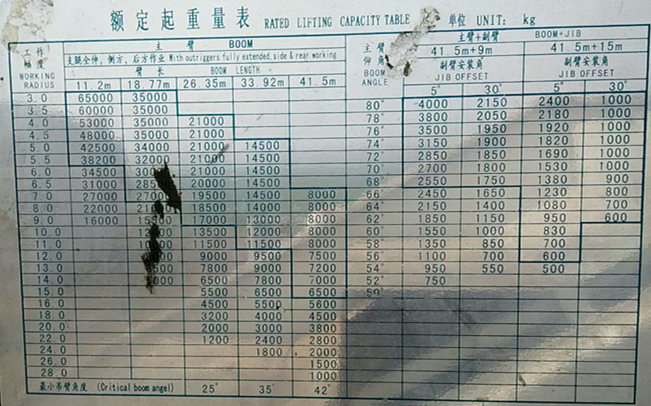 额定起重量表 RATED LIFTING CAPACITY TABLE 单位 UNIT: kg
工作幅度 WORKING RADIUS
主臂 BOOM
支腿全伸，侧方，后方作业 With outriggers fully extended, side & rear working
臂长 BOOM LENGTH
11.2m 18.77m 26.35m 33.92m 41.5m
3.0 65000 35000
3.5 60000 35000
4.0 53000 35000 21000
4.5 48000 35000 21000
5.0 42500 34000 21000 14500
5.5 38200 32000 21000 14500
6.0 34500 21000 14500
6.5 31000 20000 14500
7.0 27000 19500 14500 8000
8.0 22000 18500 14000 8000
9.0 16000 17000 13000 8000
10.0 13500 12000 8000
11.0 11500 11500 8000
12.0 9000 9500 7500
13.0 7800 9000 7200
14.0 6500 7800 7000
15.0 5500 6500 6500
16.0 4500 5500 5600
18.0 3200 4000 4500
20.0 2000 3000 3800
22.0 1200 2400 2800
24.0 1800 2000
26.0 1500
28.0 1000
最小吊臂角度 (Critical boom angel) 25° 35° 42°
主臂仰角 BOOM ANGLE
主臂+副臂 BOOM+JIB
41.5m+9m 41.5m+15m
副臂安装角 JIB OFFSET 副臂安装角 JIB OFFSET
5° 30° 5° 30°
80° 4000 2150 2400 1000
78° 3800 2050 2180 1000
76° 3500 1950 1920 1000
74° 3150 1900 1820 1000
72° 2850 1850 1690 1000
70° 2700 1800 1530 1000
68° 2550 1750 1380 900
66° 2450 1650 1230 800
64° 2150 1400 1080 700
62° 1850 1150 950 600
60° 1550 1000 830
58° 1350 850 700
56° 1100 700 600
54° 950 550 500
52° 750